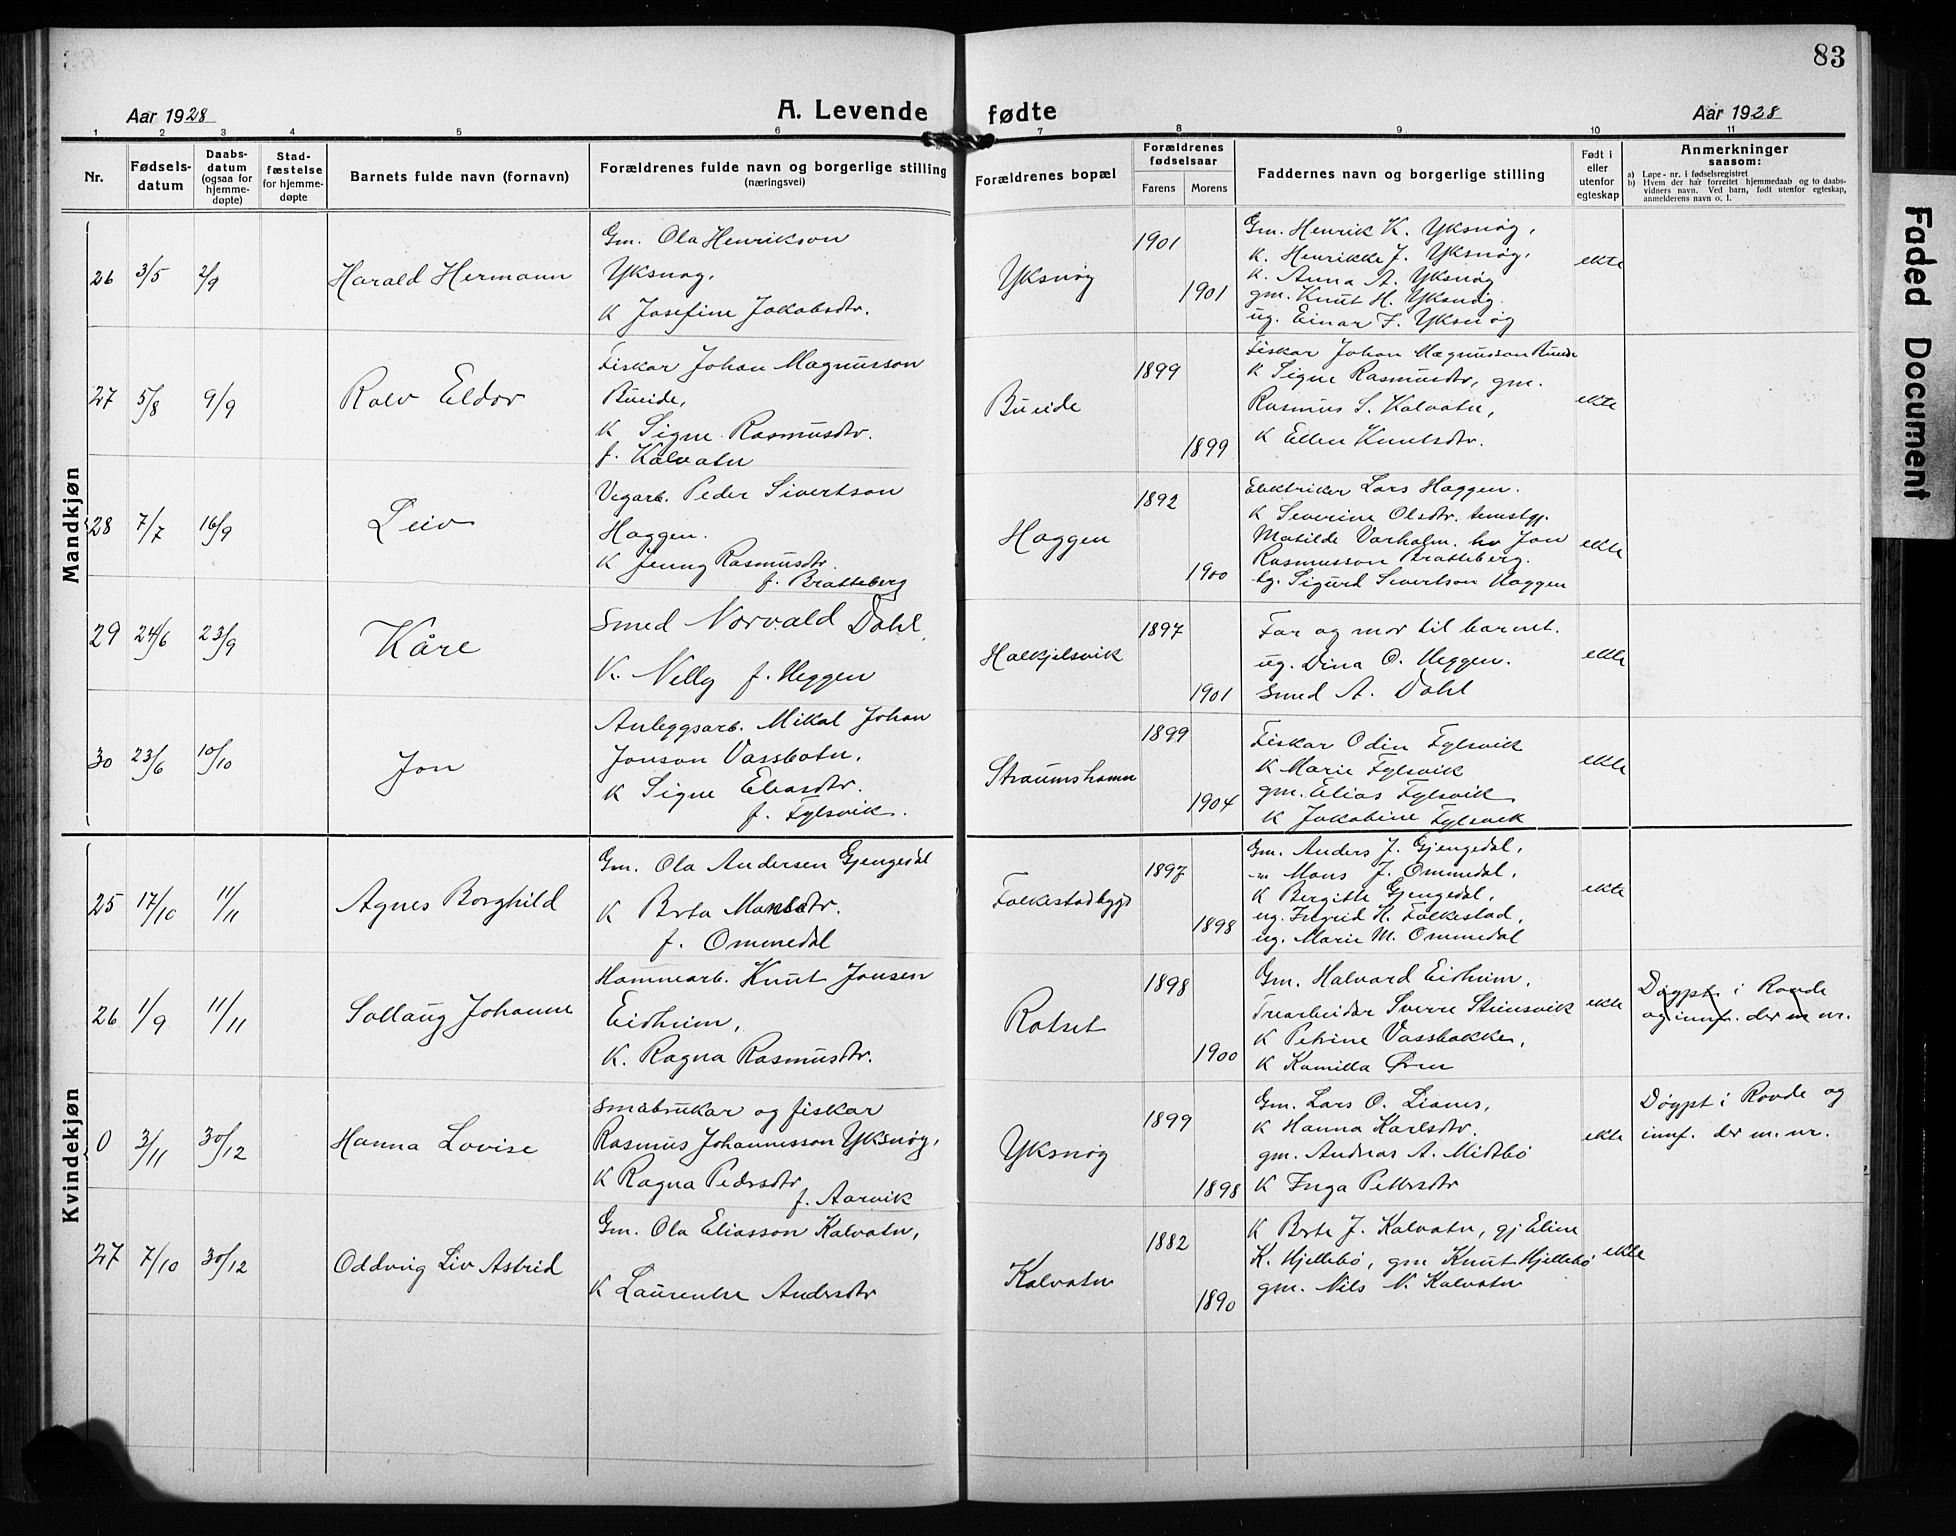 83
Aar 1928
A. Levende fødte
Aar 1928
1 2 3 4 5 6 7 8 9 10 11
Nr.
Fødsels-
datum
Daabs-
datum
(ogsaa for
hjemme-
døpte)
Stad-
fæstelse
for hjemme-
døpte
Barnets fulde navn (fornavn)
Forældrenes fulde navn og borgerlige stilling
(næringsvei)
Forældrenes bopæl
Forældrenes
fødselsaar
Farens
Morens
Faddernes navn og borgerlige stilling
Født i
eller
utenfor
egteskap
Anmerkninger
saasom:
a) Løpe-nr. i fødselsregistret
b) Hvem der har forrettet hjemmedaab og to daabs-
vidners navn. Ved barn, født utenfor egteskap,
anmelderens navn o. l.
Mandkjøn
26 3/5 2/9
Harald Hermann
Gm. Ola Henrikson
Yksnøg,
K Josefine Jakobsdtr.
Yksnøg
1901
1901
Gm. Henrik K. Yksnøg,
K. Henrikke J. Yksnøg,
K. Anna A. Yksnøg
gm. Knut H. Yksnøg.
ug. Einar F. Yksnøg
ekte
27 5/8 9/9
Rolv Eldor
Fiskar Johan Magnusson
Bueide,
K Signe Rasmusdtr.
f. Kalvatn
Bueide
1899
1899
Fiskar Johan Magnusson Bueide
K Signe Rasmusdtr, gm.
Rasmus S. Kalvatn,
K Ellen Knutsdtr.
ekte
28 7/7 16/9
Leiv
Vegarb. Peder Sivertson
Haggen.
K Jenny Rasmusdtr.
f. Bratteberg
Haggen
1892
1900
Elektriker Lars Haggen.
K Severine Olsdtr. tenestgj.
Matilde Varholm. hv Jon
Rasmusson Bratteberg.
lg. Sigurd Sivertson Haggen
ekte
29 24/6 23/9
Kåre
Smed Norvald Dahl,
K. Nelly f. Heggen
Halkjelsvik
1897
1901
Far og mor til barnet.
ug. Dina O. Heggen.
Smed A. Dahl
ekte
30 23/6 10/10
Jon
Anleggsarb. Mikal Johan
Jonson Vassbotn,
K Signe Eliasdtr.
f. Fylsvik.
Straumshamn
1899
1904
Fiskar Odin Fylsvik
K Marie Fylsvik
gm. Elias Fylsvik
K Jakobine Fylsvik
ekte
Kvindekjøn
25 17/10 11/11
Agnes Borghild
Gm. Ola Andersen Gjengedal
K Brta Monsdtr.
f. Ommedal
Folkestadbygd
1897
1898
Gm. Anders J. Gjengedal,
" Mons J. Ommedal,
K Bergitte Gjengedal,
ug. Ingrid K. Folkestad,
ug. Marie M. Ommedal
ekte
26 1/9 11/11
Sollaug Johanne
Hamnearb. Knut Jonsen
Eidheim,
K. Ragna Rasmusdtr.
Rotset
1898
1900
Gm. Halvard Eidheim,
Trearbeidar Sverre Steinsvik
K Petrine Vassbakke,
K Kamilla Øren
ekte
Døypt i Rovde
og innf. der m nr.
0 3/11 30/12
Hanna Lovise
Småbrukar og fiskar
Rasmus Johannesson Yksnøg,
K Ragna Pedersdtr
f. Aarvik
Yksnøg
1899
1898
Gm. Lars O. Lianes,
K Hanna Karlsdtr.
gm. Andreas A. Midtbø
K Inga Pettersdtr
ekte
Døypt i Rovde og
innf. der m. nr.
27 7/10 30/12
Oddvig Liv Astrid
Gm. Ola Eliasson Kalvatn,
K Laurentse Andersdtr
Kalvatn
1882
1890
K Brte J. Kalvatn, gj Eline
K. Hjellebø, gm Knut Hjellebø
gm. Nils N. Kalvatn
ekte
Faded Document